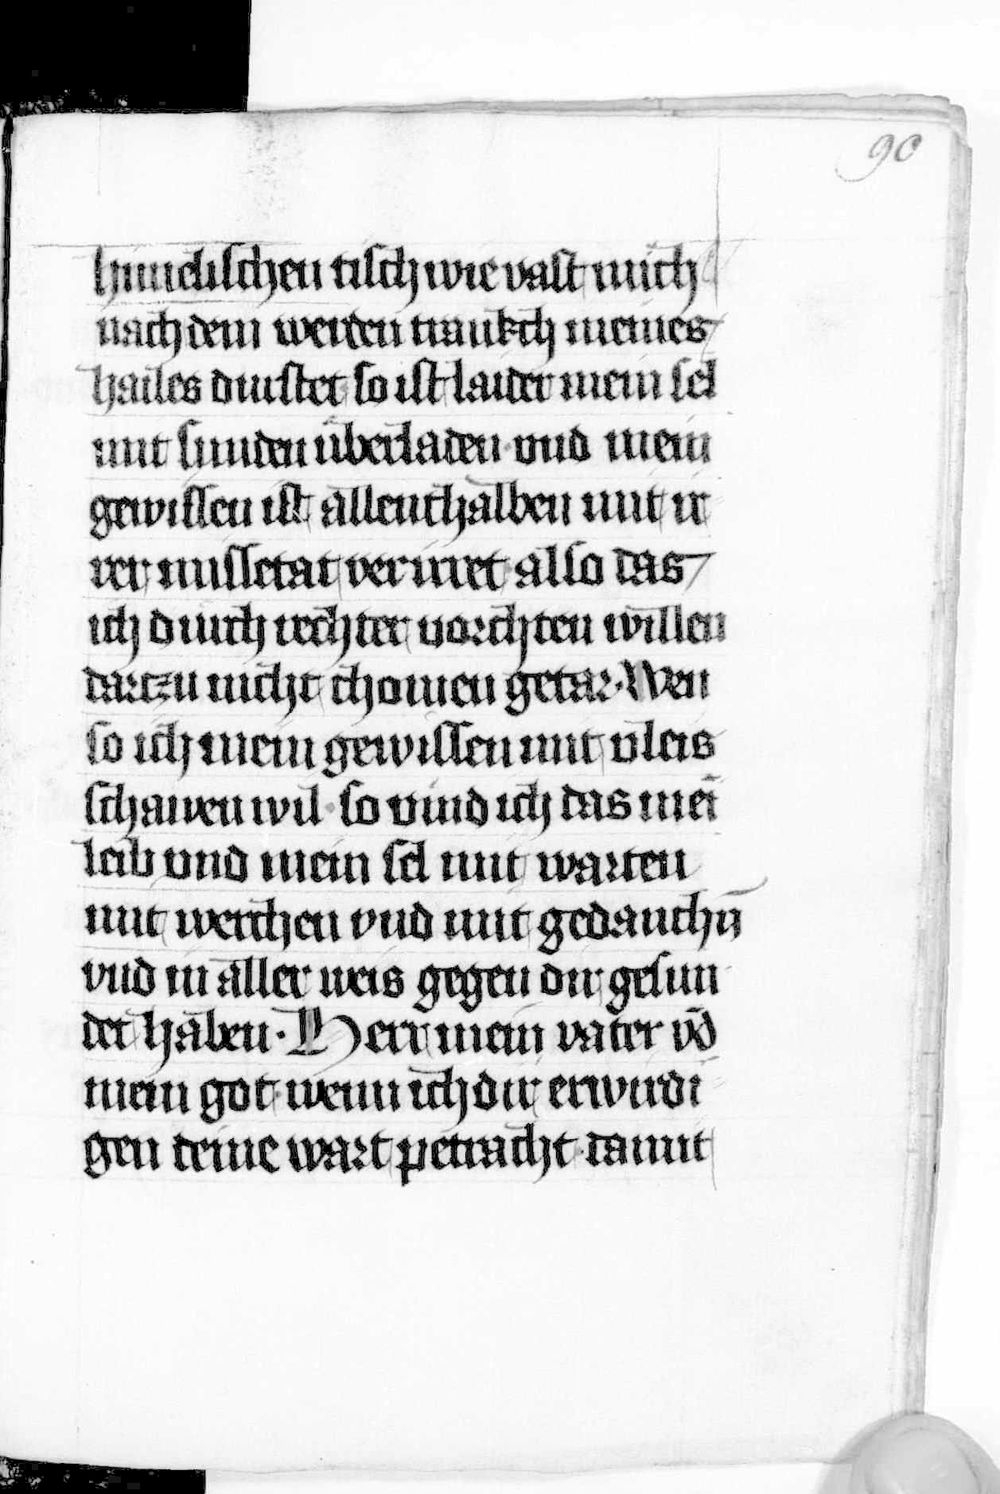 90
himelischen tisch wie vast mich
nach dem werden trankch meines
hailes durstet so ist laider mein sel
mit sunden überladen vnd mein
gewissen ist allenthalben mit ir
rer missetat verirret also das
ich durch rechter vorchten willen
darczu nicht chomen getar. Wen
so ich mein gewissen mit vleis
schawen wil so vind ich das mei̅
leib vnd mein sel mit warten
mit werchen vnd mit gedanchn̅
vnd in aller weis gegen dir gesun
det haben. Herr mein vater vn̅d
mein got wenn ich dir erwirdi
gen deine wart petracht damit